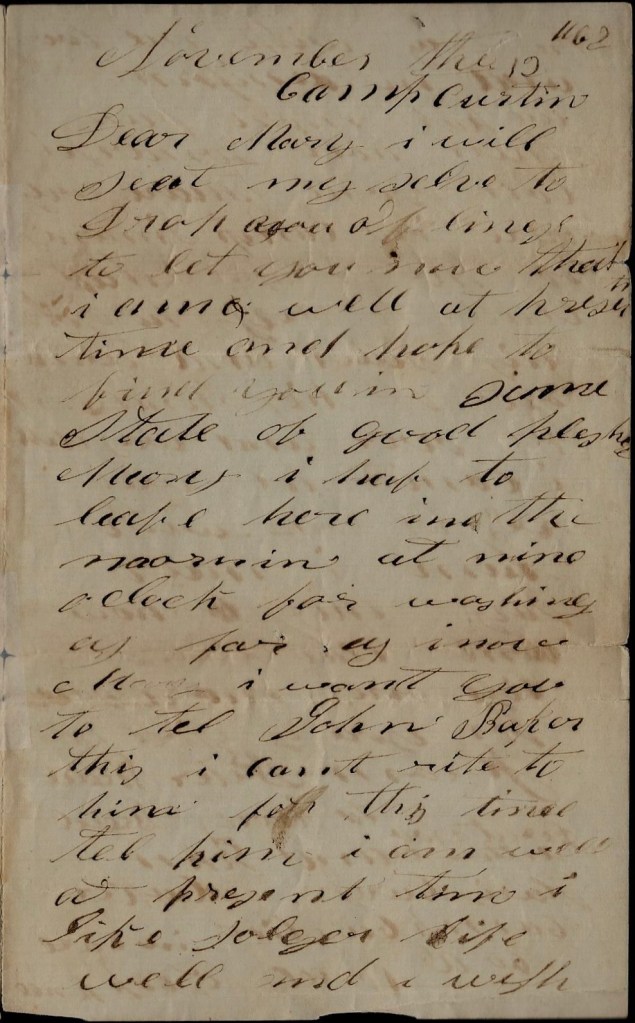 1162
November the 13
Camp Curtin
Dear Mary i will
seat my selve to
Drop you of lines
to let you now that
i am well at present
time and hope to
find you in some
State of good
Mary i haf to
leafe here in the
moornin at nine
oClock for washing
as far as i now
Mary i want you
to tel John
this i cant rite to
him for this time
tel him i am well
at present time i
like solger life
well and i wish